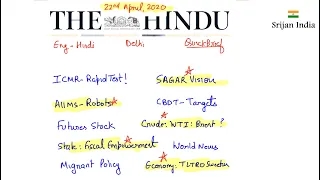 22nd April, 2020
THE HINDU
Srijan India
Eng - Hindi Delhi Quick Brief
ICMR - Rapid Test! SAGAR Vision
AIIMS - Robots CBDT - Targets
Futures Stock Crude: WTI: Brent?
State: Fiscal Empowerment World News
Migrant Policy Economy: TLTRO Auction